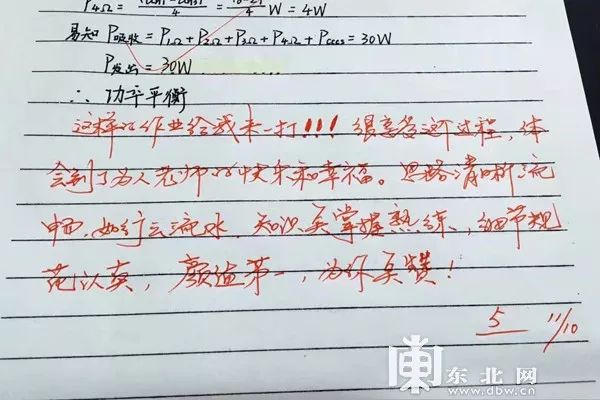 P4Ω = 4 = 4 W = 4W
易知 P吸收 = P1Ω + P2Ω + P3Ω + P4Ω + Pcccs = 30W
P发出 = 30W
∴ 功率平衡
这样的作业给我来一打!!! 很享受这个过程,体
会到了为人老师的快乐和幸福。思路清晰流
畅,如行云流水,知识点掌握熟练,细节规
范认真,颜值第一,为你点赞!
5 11/10
東北网
www.dbw.cn